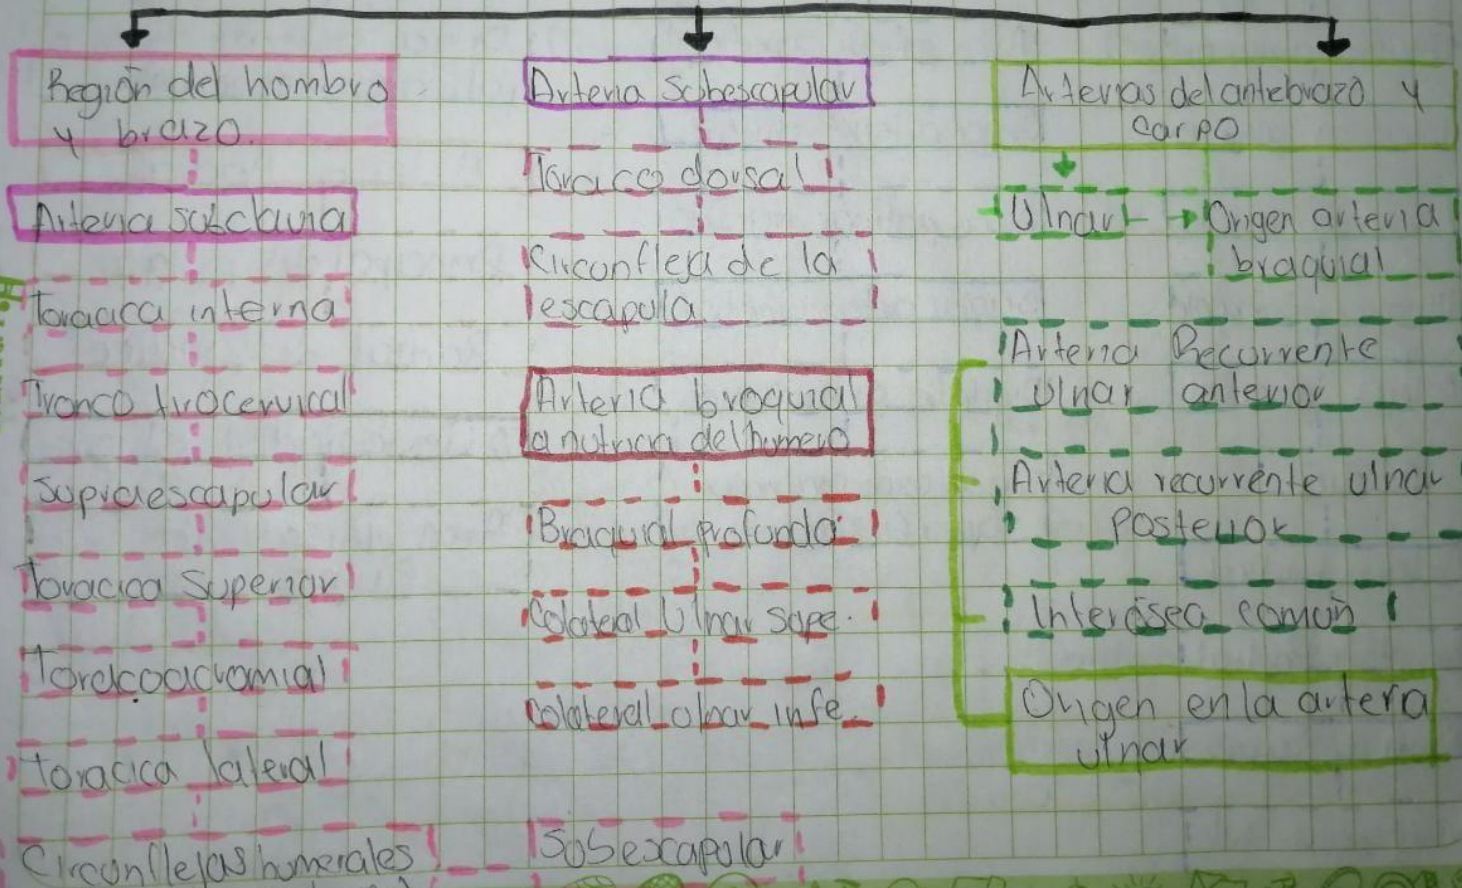 Región del hombro
y brazo.
Arteria subclavia
Toracica interna
Tronco tirocervical
Supraescapular
Toracica Superior
Toracoacromial
Toracica lateral
Circunflejas humerales
Arteria Subescapular
Toraco dorsal
Circunfleja de la
escapula
Arteria braquial
a nutricia del humero
Braquial profunda
Colateral Ulnar Supe.
Colateral ulnar infe.
Subescapular
Arterias del antebrazo y
carpo
Ulnar
Origen arteria
braquial
Arteria Recurrente
Ulnar anterior
Arteria recurrente ulnar
Posterior
Interósea común
Origen en la artera
ulnar